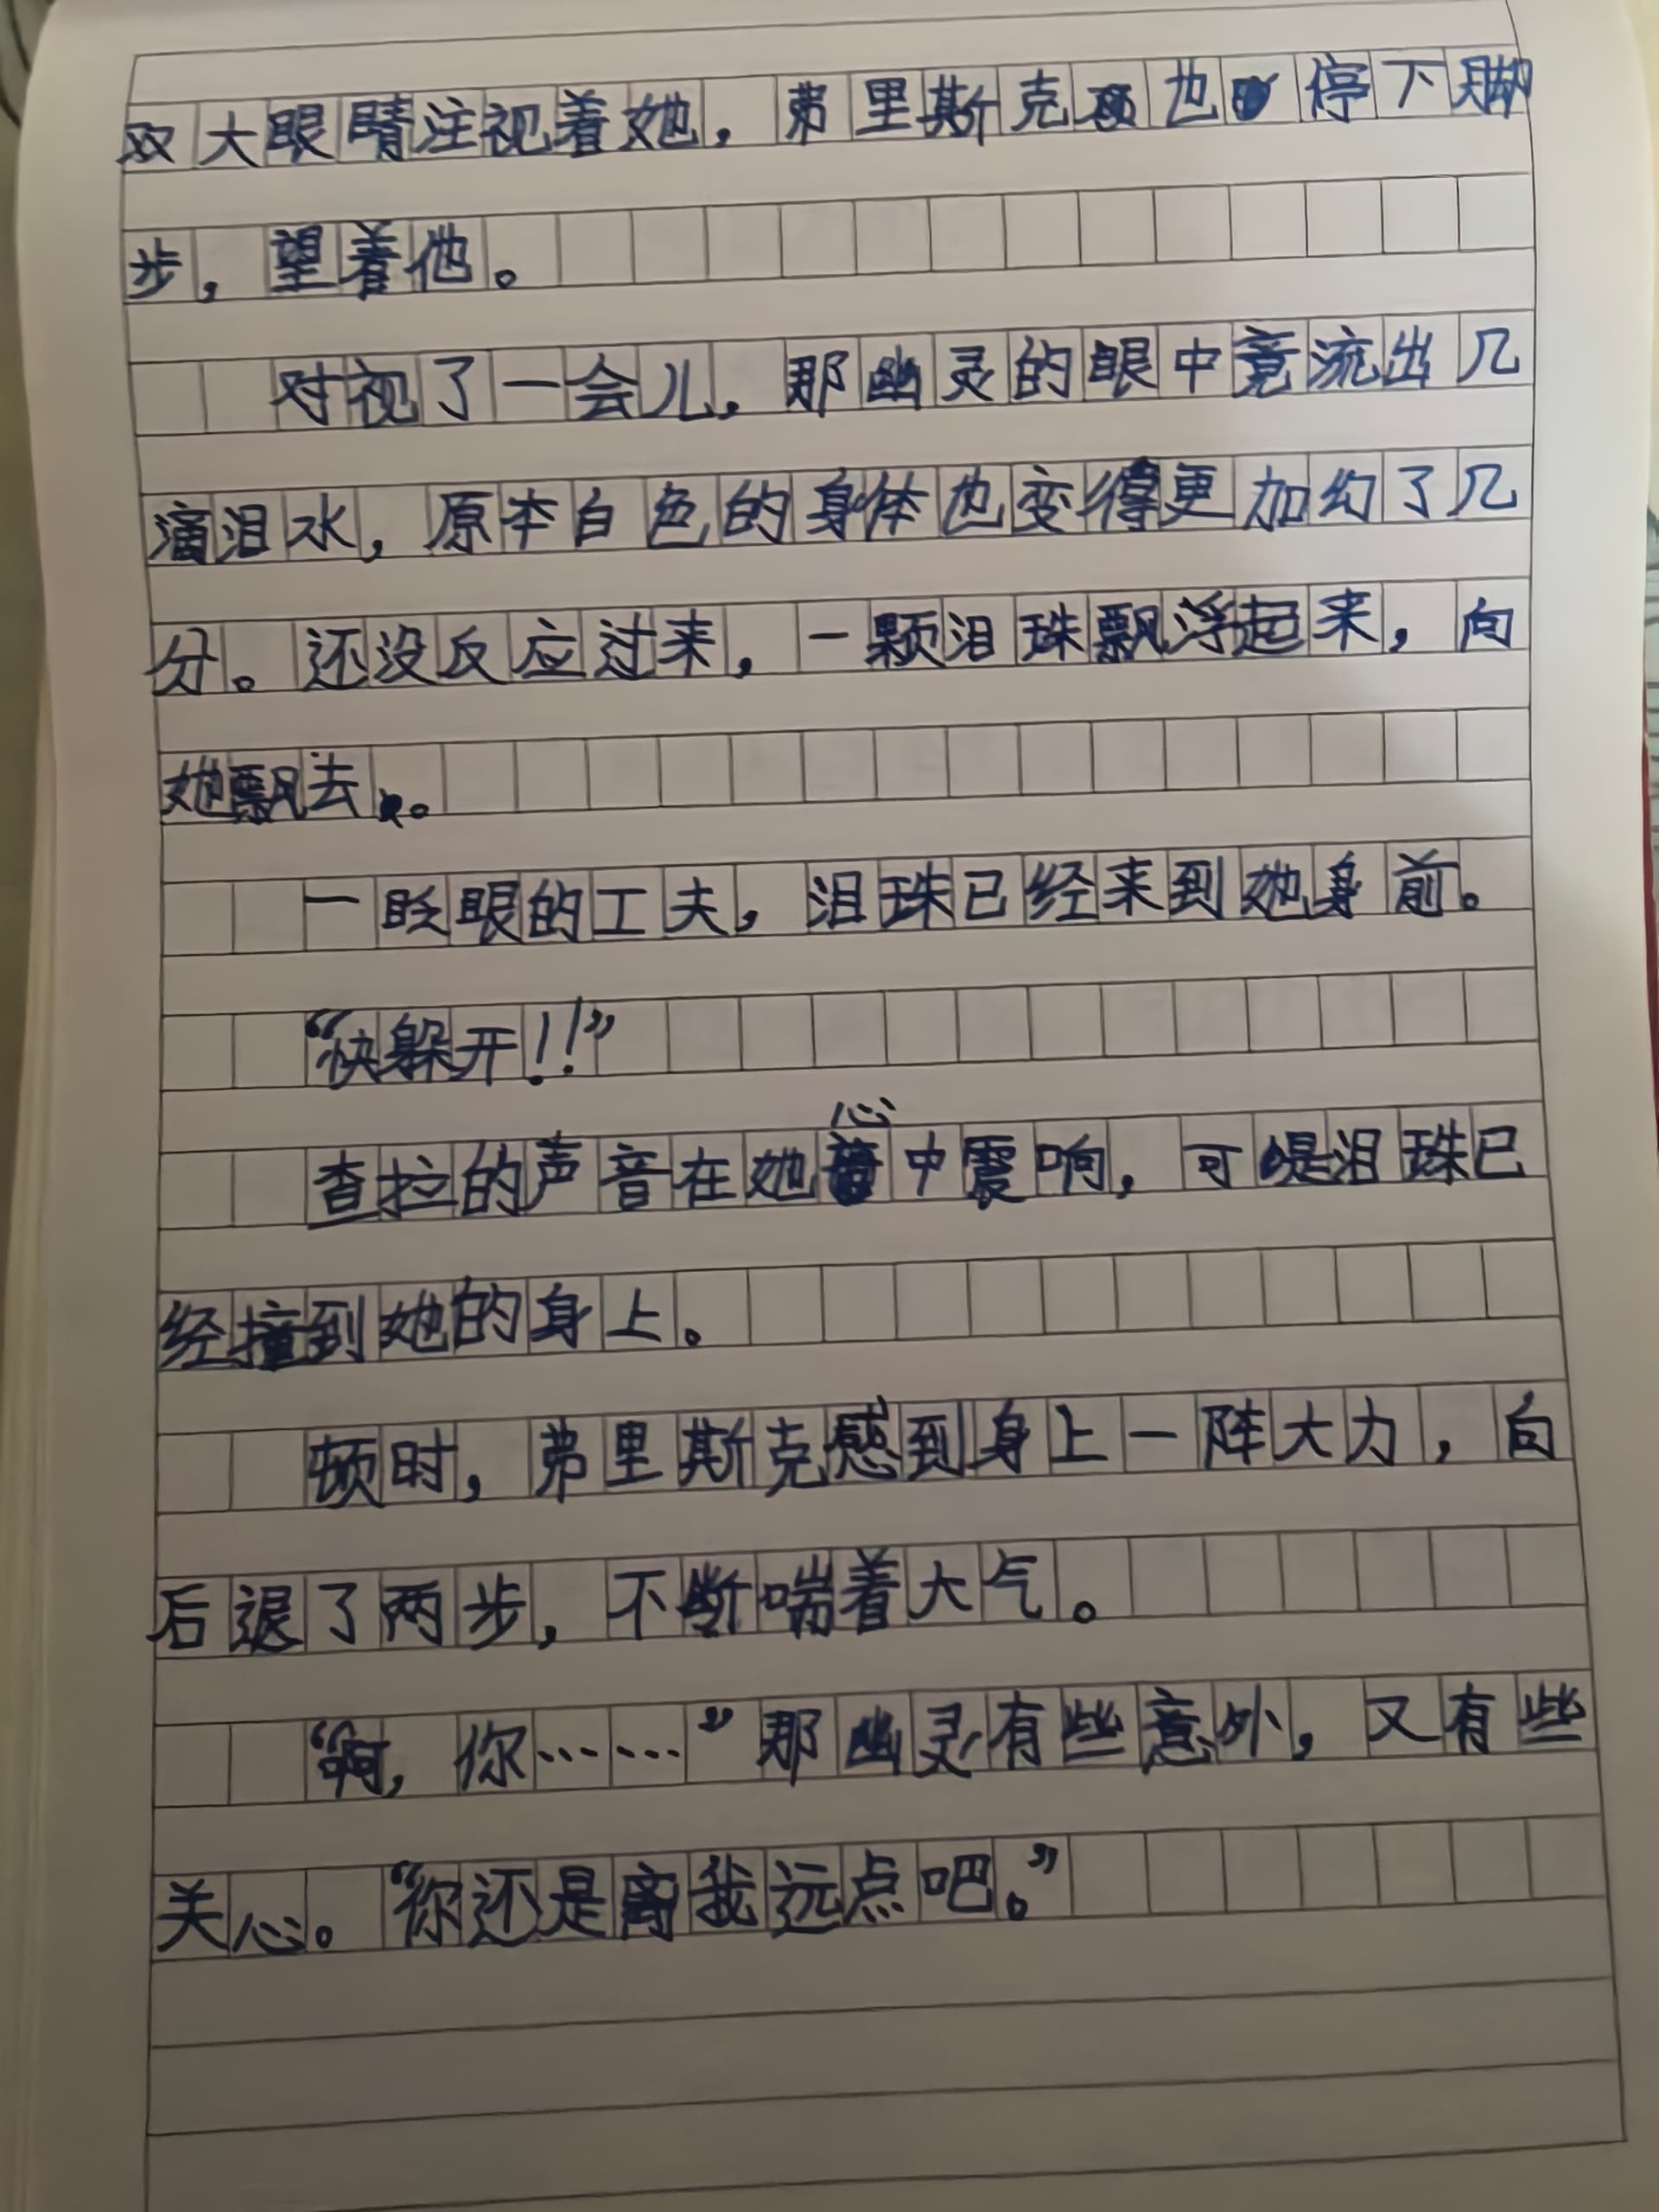 双大眼睛注视着她，弗里斯克也停下脚
步，望着他。
对视了一会儿，那幽灵的眼中竟流出几
滴泪水，原本白色的身体也变得更加幻了几
分。还没反应过来，一颗泪珠飘浮起来，向
她飘去。
一眨眼的工夫，泪珠已经来到她身前。
“快躲开！！”
查拉的声音在她心中震响，可是泪珠已
经撞到她的身上。
顿时，弗里斯克感到身上一阵大力，向
后退了两步，不断喘着大气。
“啊，你……”那幽灵有些意外，又有些
关心。“你还是离我远点吧。”